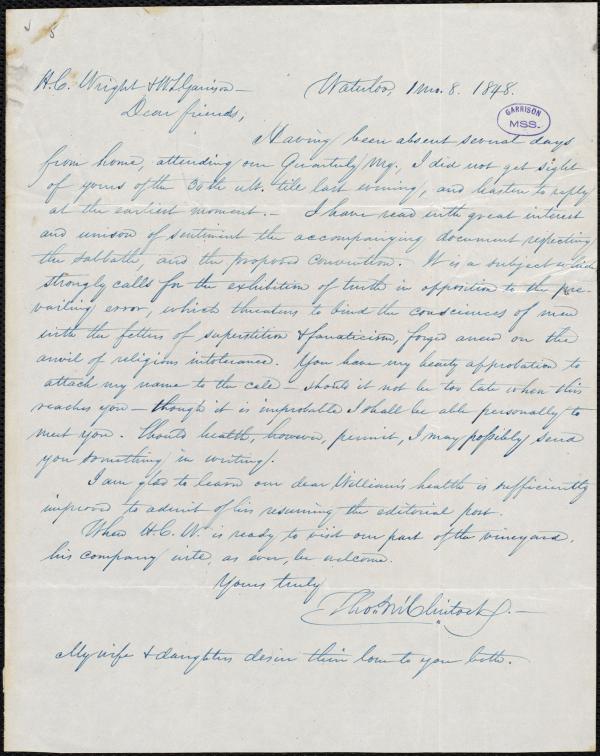 H.C. Wright & W L Garrison —
Waterloo, 1 mo. 8. 1848.
GARRISON
MSS.
Dear friends,
Having been absent several days
from home, attending our Quarterly Mg., I did not get sight
of yours of the 30th ult. till last evening, and hasten to reply
at the earliest moment. — I have read with great interest
and unison of sentiment the accompanying document respecting
the Sabbath, and the proposed Convention. It is a subject which
strongly calls for the exhibition of truth in opposition to the pre-
vailing error, which threatens to bind the consciences of men
with the fetters of superstition & fanaticism, forged anew on the
anvil of religious intolerance. You have my hearty approbation to
attach my name to the call — should it not be too late when this
reaches you — though it is improbable I shall be able personally to
meet you. Should health, however, permit, I may possibly send
you something in writing.
I am glad to learn our dear William's health is sufficiently
improved to admit of his resuming the editorial post.
When H.C.W. is ready to visit our part of the vineyard,
his company will, as ever, be welcome.
Yours truly
Tho. M'Clintock. —
My wife & daughters desire their love to you both.